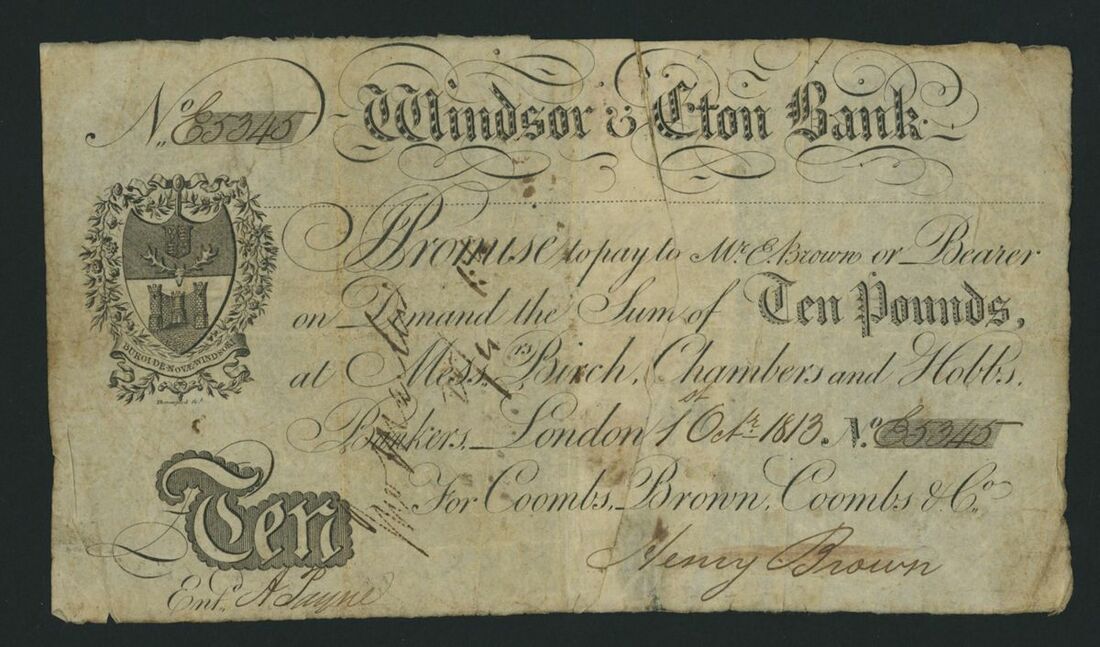 No. E5345
Windsor & Eton Bank.
I Promise to pay to Mr. E. Brown or Bearer
on Demand the Sum of Ten Pounds,
at Messrs. Birch, Chambers and Hobbs,
Bankers, London 1st Octr. 1813. No. E5345
For Coombs, Brown, Coombs & Co.
Henry Brown
£ Ten
Entd. A Payne